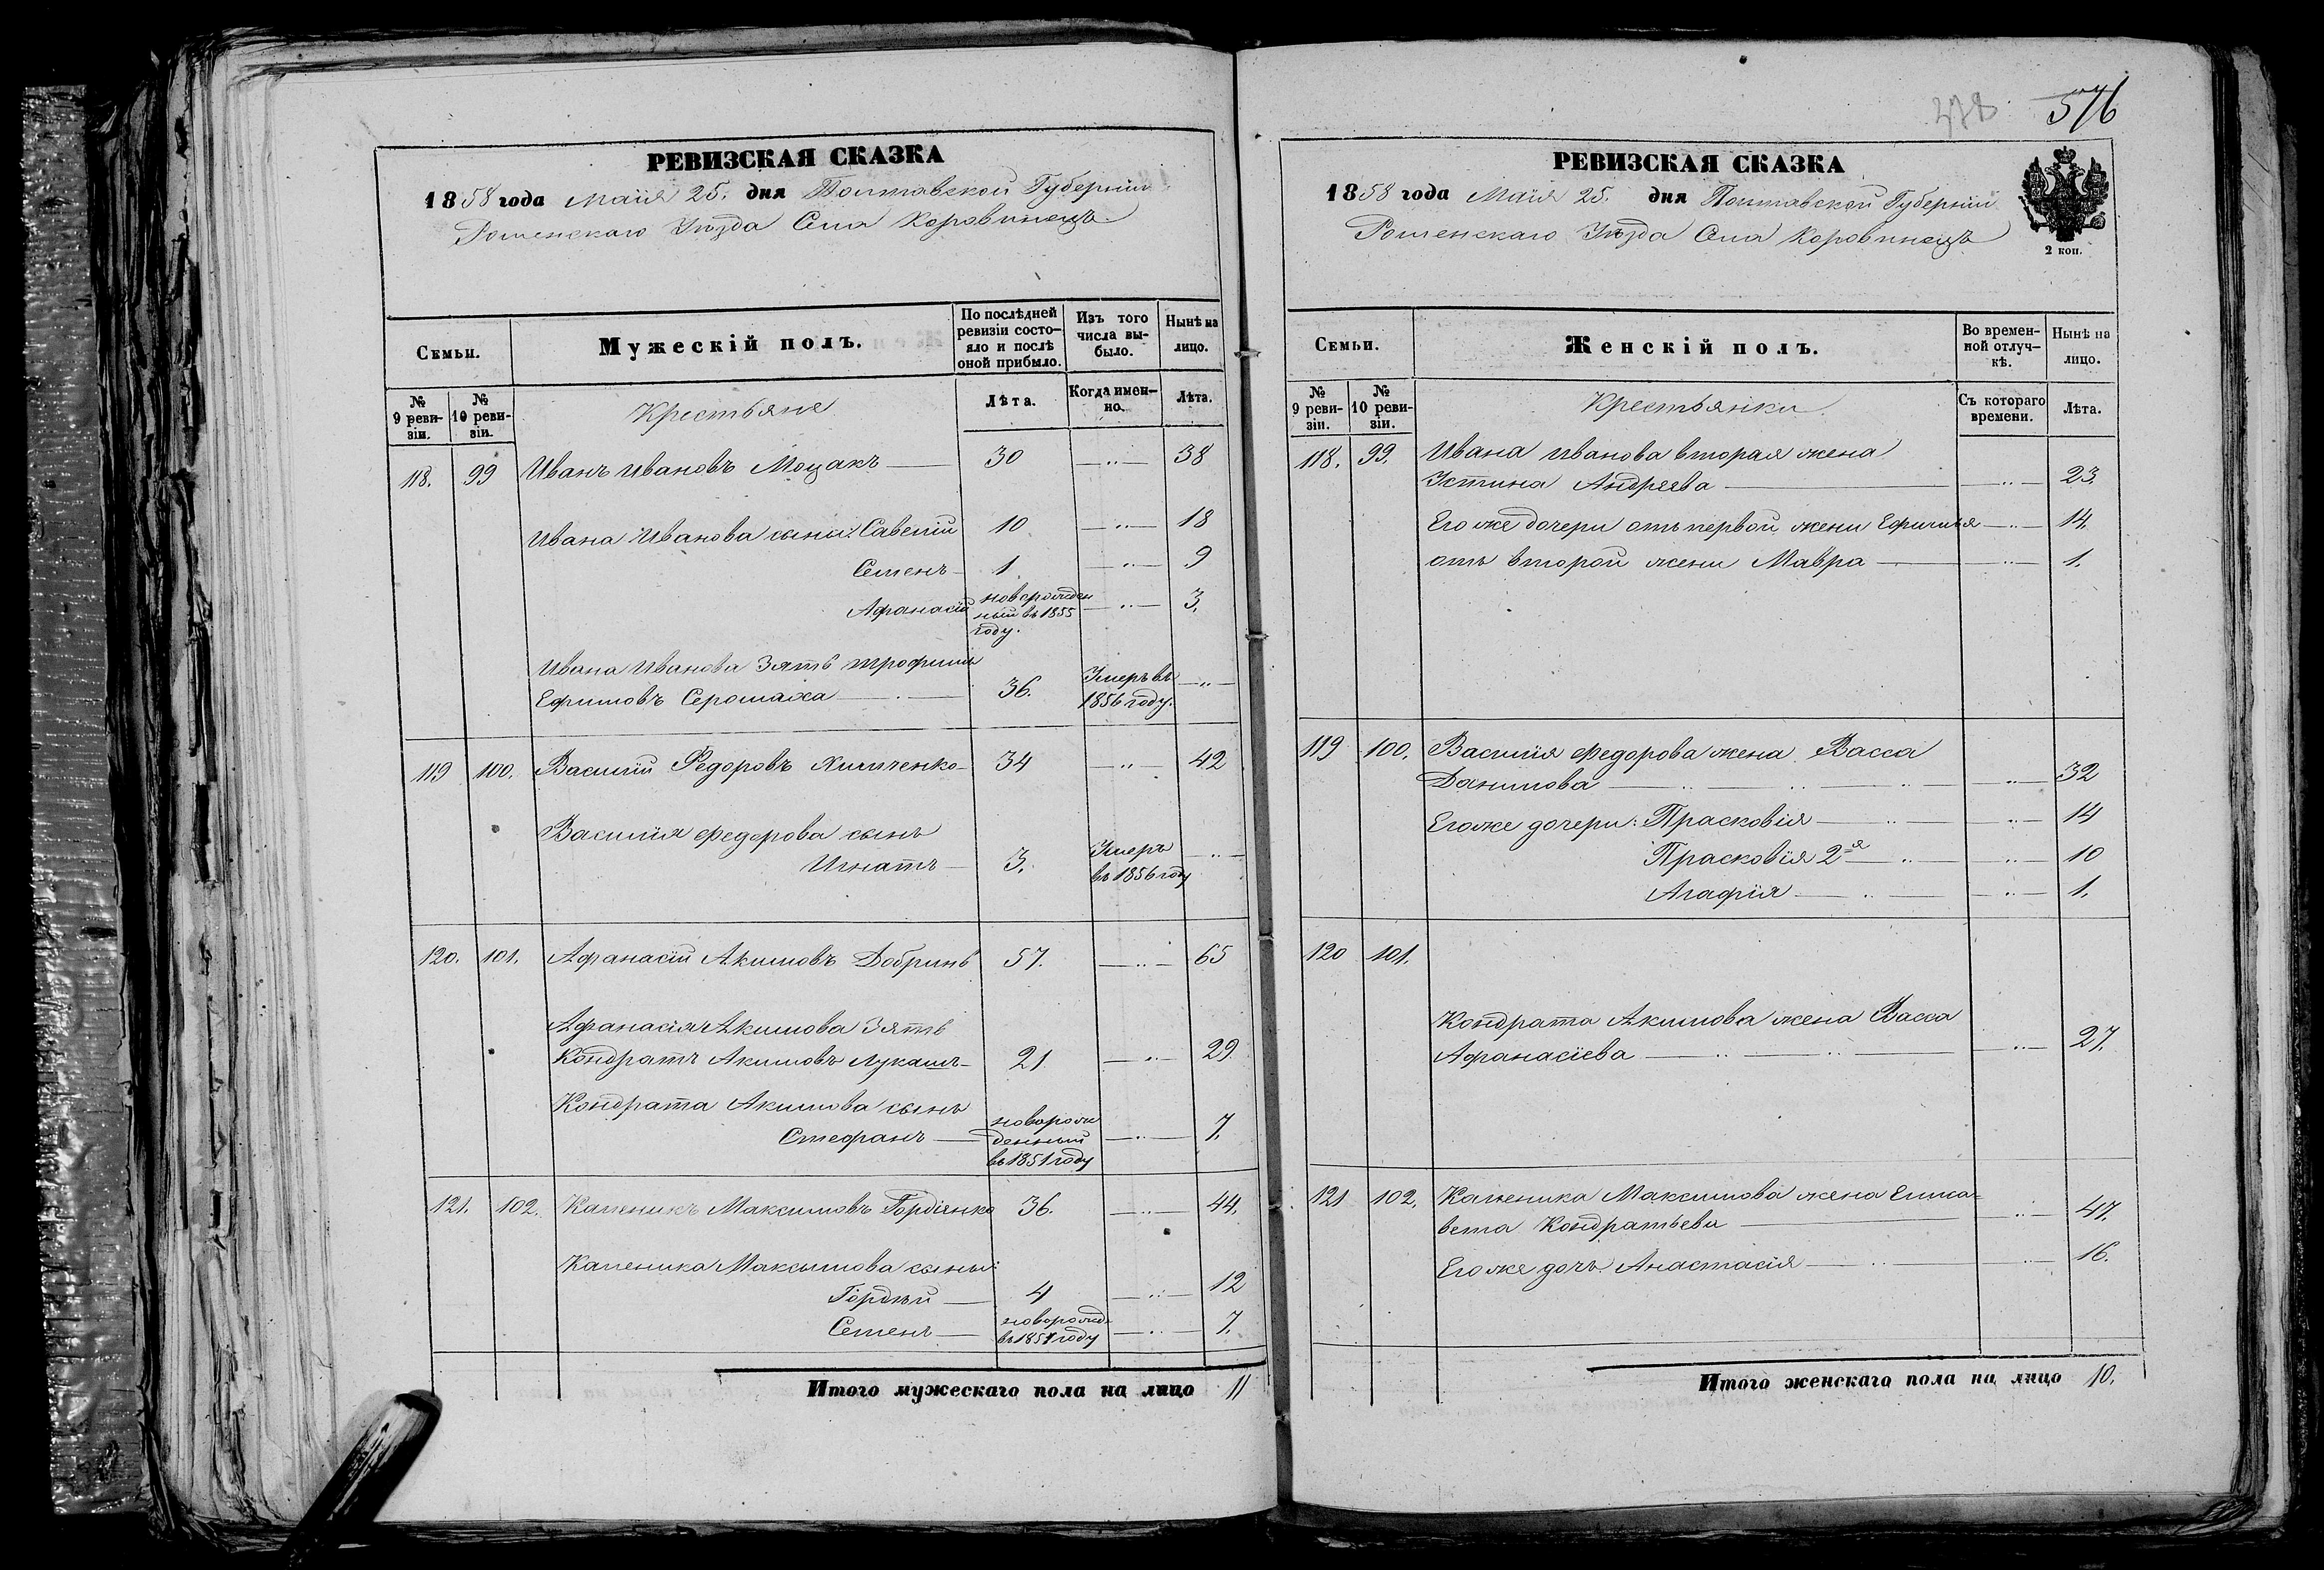 РЕВИЗСКАЯ СКАЗКА
1858 года маия 25. дня Полтавской Губернiи
Роменскаго Уѣзда Села Коровинецъ.
Семьи.
Мужескiй полъ.
По послѣдней ревизiи состо-
яло и послѣ оной прибыло.
Изъ того числа вы-
было.
Нынѣ на лицо.
№ 9 реви-
зiи.
№ 10 реви-
зiи.
Крестьяне
Лѣта.
Когда имен-
но.
Лѣта.
118. 99 Иванъ Ивановъ Моцакъ 30 —„— 38
Ивана Иванова сыны: Савелiй 10 —„— 18
Семенъ 1 —„— 9
Афанасiй новорожден
ный въ 1855
году. —„— 3.
Ивана Иванова Зять трофимъ
Ефимовъ Серошапка 36. Умеръ въ
1856 году. —„—
119 100. Василiй Федоровъ Химиченко 34 —„— 42
Василiя Федорова сынъ
Игнатъ 3. Умеръ
въ 1856 году —„—
120. 101. Афанасiй Акимовъ Добринь 57. —„— 65
Афанасiя Акимова Зять
Кондратъ Акимовъ Лукашъ 21 —„— 29
Кондрата Акимова сынъ
Стефанъ новорож
денный
въ 1851 году —„— 7.
121. 102. Каленикъ Максимовъ Гордiенко 36. —„— 44.
Каленика Максимова сыны:
Гордѣй 4 —„— 12
Семенъ новорожд.
въ 1851 году —„— 7.
Итого мужескаго пола на лицо 11
378 576
РЕВИЗСКАЯ СКАЗКА
1858 года Маiя 25. дня Полтавской Губернiи
Роменскаго Уѣзда Села Коровинецъ
2 коп.
Семьи.
Женскiй полъ.
Во времен-
ной отлуч-
кѣ.
Нынѣ на лицо.
№ 9 реви-
зiи.
№ 10 реви-
зiи.
Крестьянки
Съ котораго времени.
Лѣта.
118. 99. Ивана Иванова вторая жена
Устина Андреева —„— 23.
Его же дочери отъ первой жени Ефимия —„— 14.
отъ второй жени Мавра —„— 1.
119 100. Василiя Федорова жена Васса
Данилова —„— 32
Его же дочери: Прасковiя —„— 14
Прасковiя 2я —„— 10
Агафiя —„— 1.
120 101.
Кондрата Акимова жена Васса
Афанасiева —„— 27.
121 102. Каленика Максимова жена Елиса-
вета Кондратьева —„— 47.
Его же дочь Анастасiя —„— 16.
Итого женскаго пола на лицо 10.